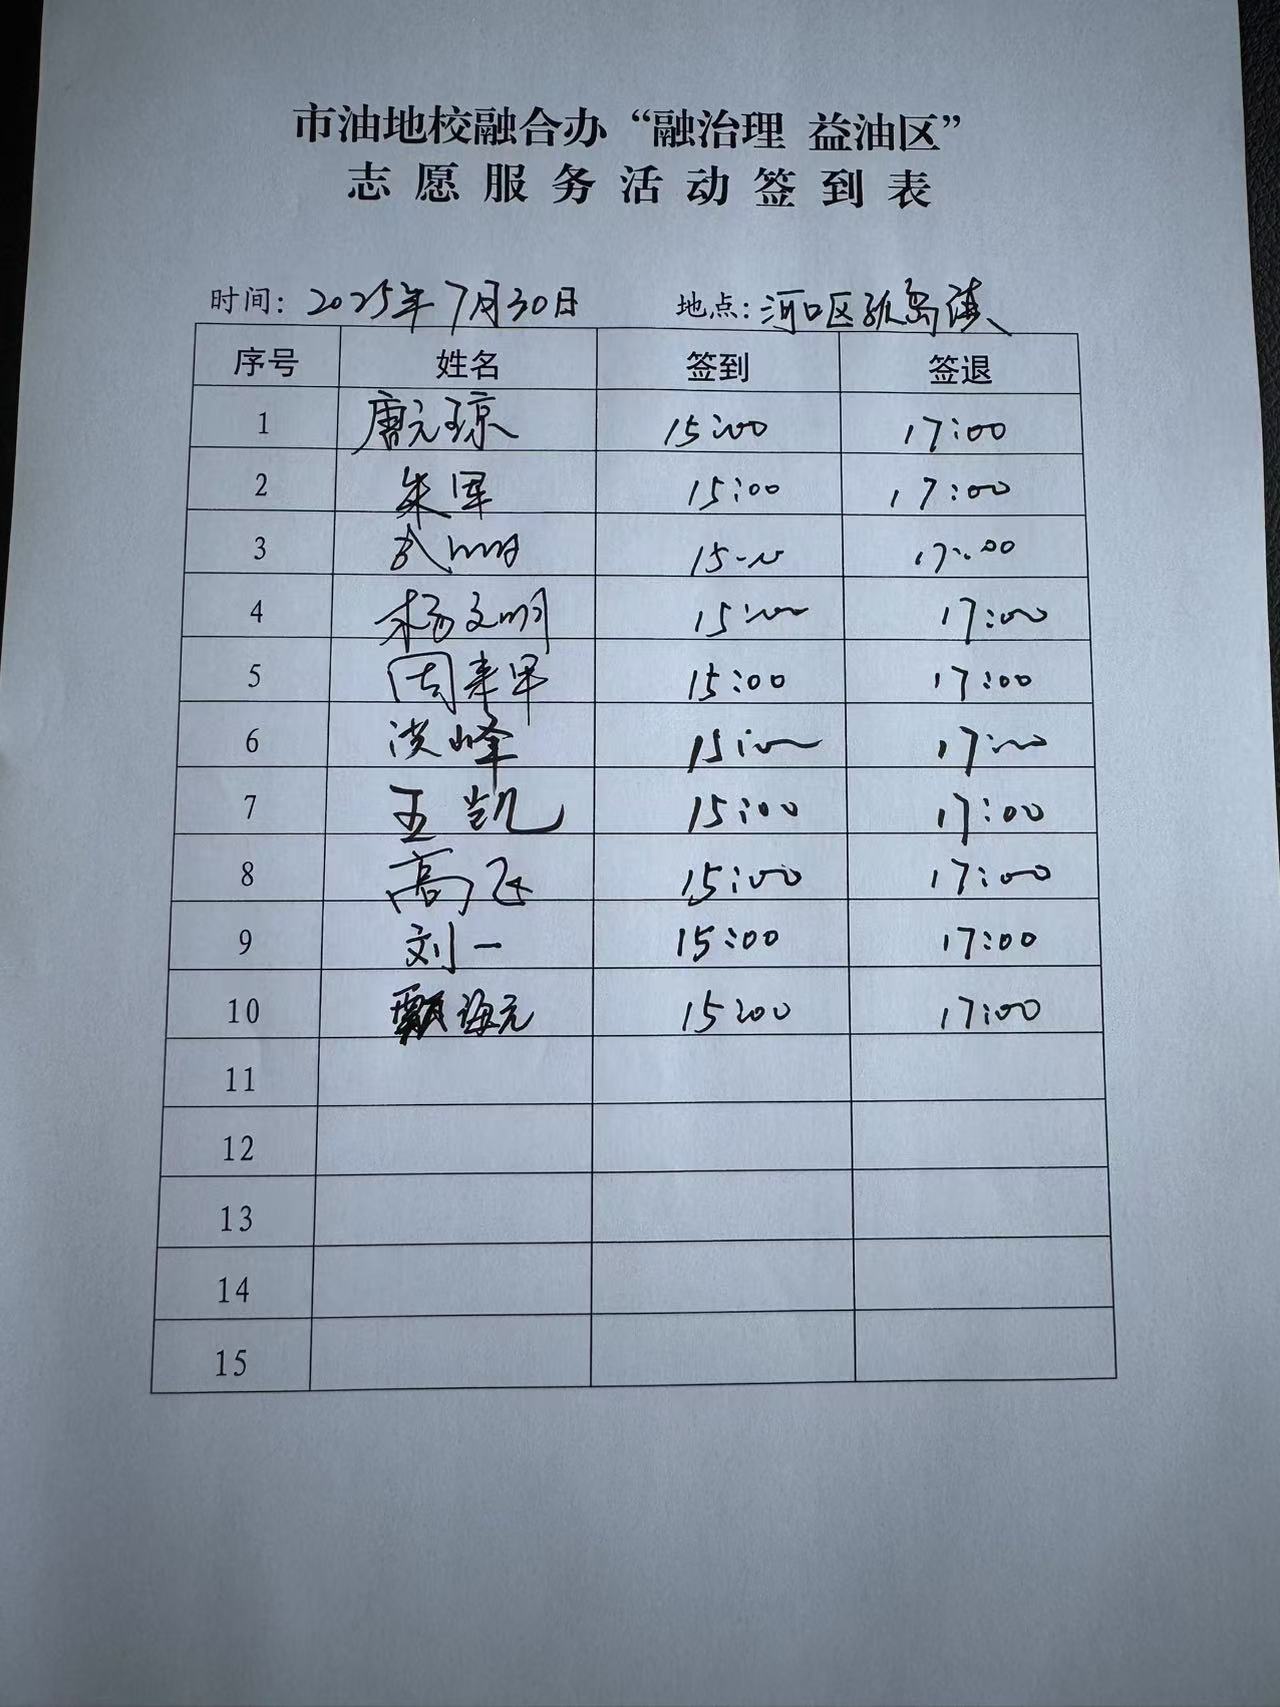 市油地校融合办“融治理 益油区”
志愿服务活动签到表
时间：2025年7月30日 地点：河口区孤岛镇
序号 姓名 签到 签退
1 唐元琼 15:00 17:00
2 朱军 15:00 17:00
3 15:00 17:00
4 杨文明 15:00 17:00
5 周来军 15:00 17:00
6 洪峰 15:00 17:00
7 王凯 15:00 17:00
8 高飞 15:00 17:00
9 刘一 15:00 17:00
10 海元 15:00 17:00
11
12
13
14
15